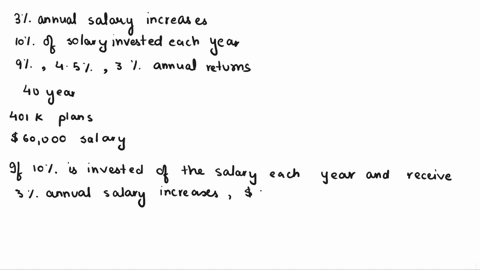 3% annual salary increases
10% of salary invested each year
9%, 4.5%, 3% annual returns
40 year
401 K plans
$60,000 salary
If 10% is invested of the salary each year and receive
3% annual salary increases, $